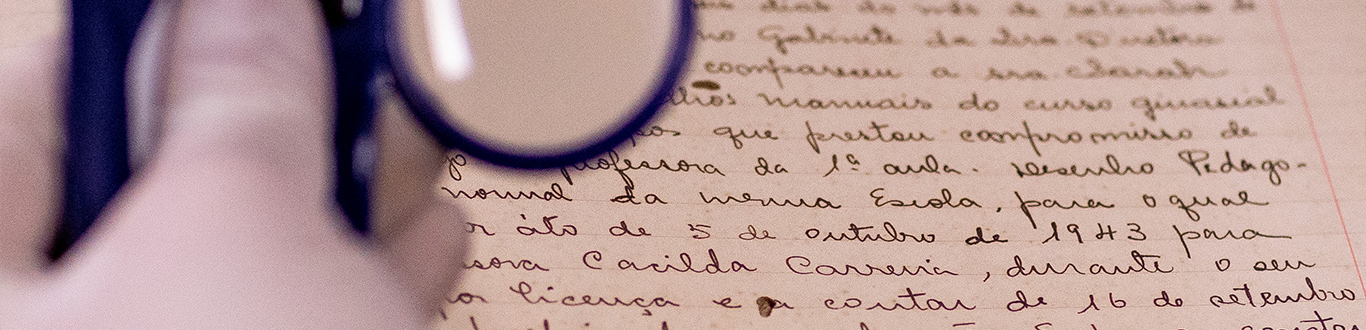 dias do mês de setembro de
no Gabinete da Snra. Diretora
compareceu a sra. Clarah
manuais do curso ginasial
que prestou compromisso de
professora da 1ª aula. Desenho Pedago-
normal da mesma Escola, para o qual
áto de 5 de outubro de 1943 para
Cacilda Correria, durante o seu
licença e a contar de 16 de setembro